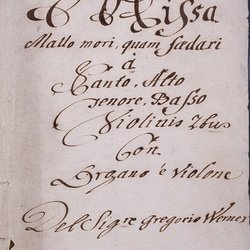 Missa
Mallo mori, quam fædari
à
Canto. Alto
Tenore. Basso
Violinis 2bus
Con
Organo è Violone
Del Sigre Gregorio Werner